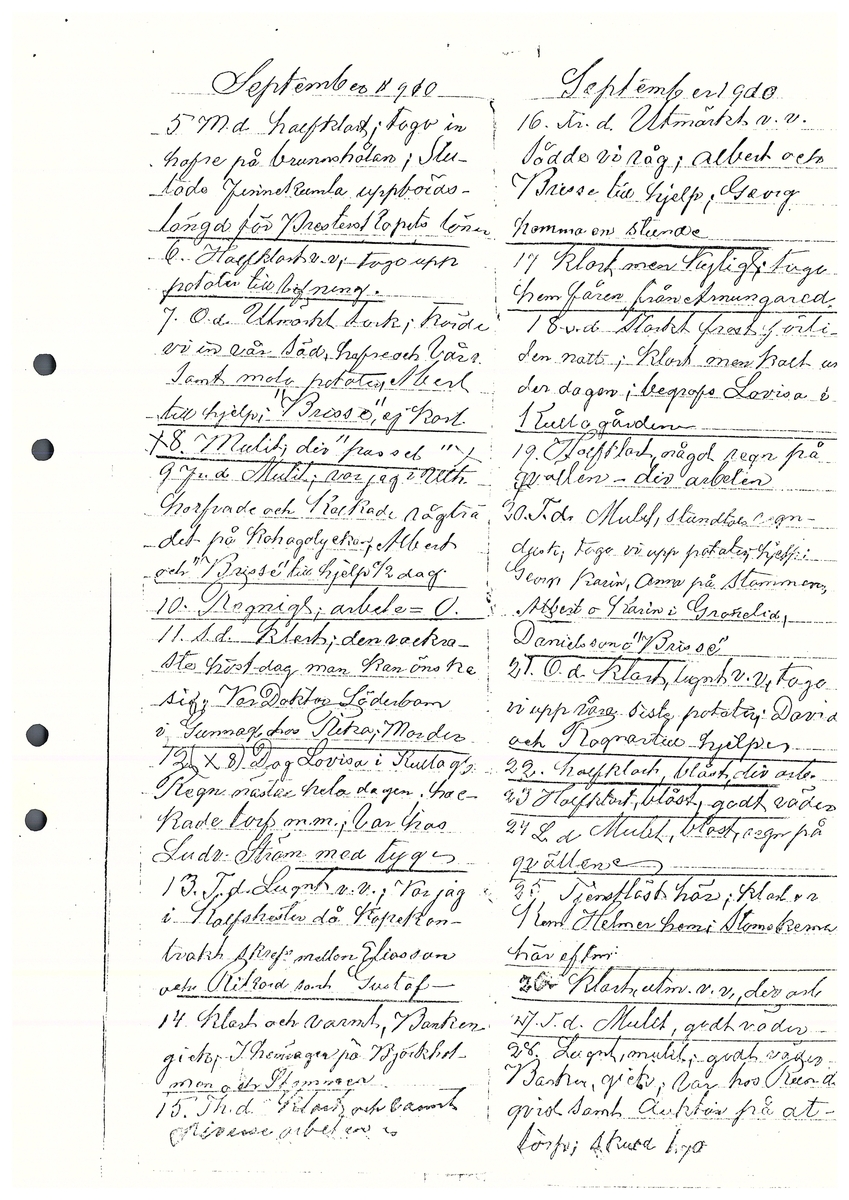 September 1910
5 M.d halfklart; togo in
hafre på brunnshålan; Slu-
tade Jinnekumla uppbörds-
längd för Presterskapets löner
6. Halfklart v.v; togo upp
potater till
7. O.d. Utmärkt tork; körde
vi in vår säd, hafre och
samt mola potater, Albert
till hjelp; "Brisse", ej Karl
X8. Mulit; div "passet"
9 Fr.d Mulit; var jag i
och
det på Kohagalyckan, Albert
och "Brisse" till hjelp 1/2 dag
10. Regnigt; arbete = 0.
11. S.d. Klart; den vackra-
ste höst-dag man kan önska
sig; Var Doktor Söderbom
i Gunnar hos Petra; Mordes
12 (X8) Dog Lovisa i Kullag.
Regn nästan hela dagen. hac-
kade torf m.m.; Var hos
Ludv. Ström med tyger
13. T.d. Lugnt v.v.; Var jag
i Kalfshester då Köpekon-
trakt skrefs mellan Eliasson
och Rikard samt Gustaf
14 Klart och varmt, Banken
gick; på Björkhol-
men och Stommen
15. Th.d Klart och varmt
diverse arbeten
September 1910
16. Fr.d. Utmärkt v.v.
Sådde vi råg; Albert och
Brisse till hjelp, Georg
hemma en stund
17 Klart men kyligt; togo
hem fåren från Armungared.
18 s.d Starkt frost förli-
den natt; Klart men kalt un
der dagen; begrofs Lovisa i
Kullagården
19. Halfklart, något regn på
qvällen - div arbeten
20. T.d. Mulet, stundtals regn-
digt; togo vi upp potater, hjelp:
Georg Karin, Anna på Stommen,
Albert o Karin i Granelid,
Danielsson o "Brisse"
21. O.d. Klart, lugnt v.v, togo
vi upp våra sista potater; David
och Ragnar till hjelp
22. halfklart, blåst, div arb.
23 Halfklart, blåst, godt väder
24 L.d Mulet, blåst, regn på
qvällen
25 Tjenstlöst här; klart v.v
Kom Helmer hem; Stomskema
här eftm:
26 Klart, utm. v.v., div arb
27. T.d. Mulet, godt väder
28. Lugnt, mulit; godt väder
Banken, gick; Var hos
qvist samt Auktion på
torp; skued 1.70